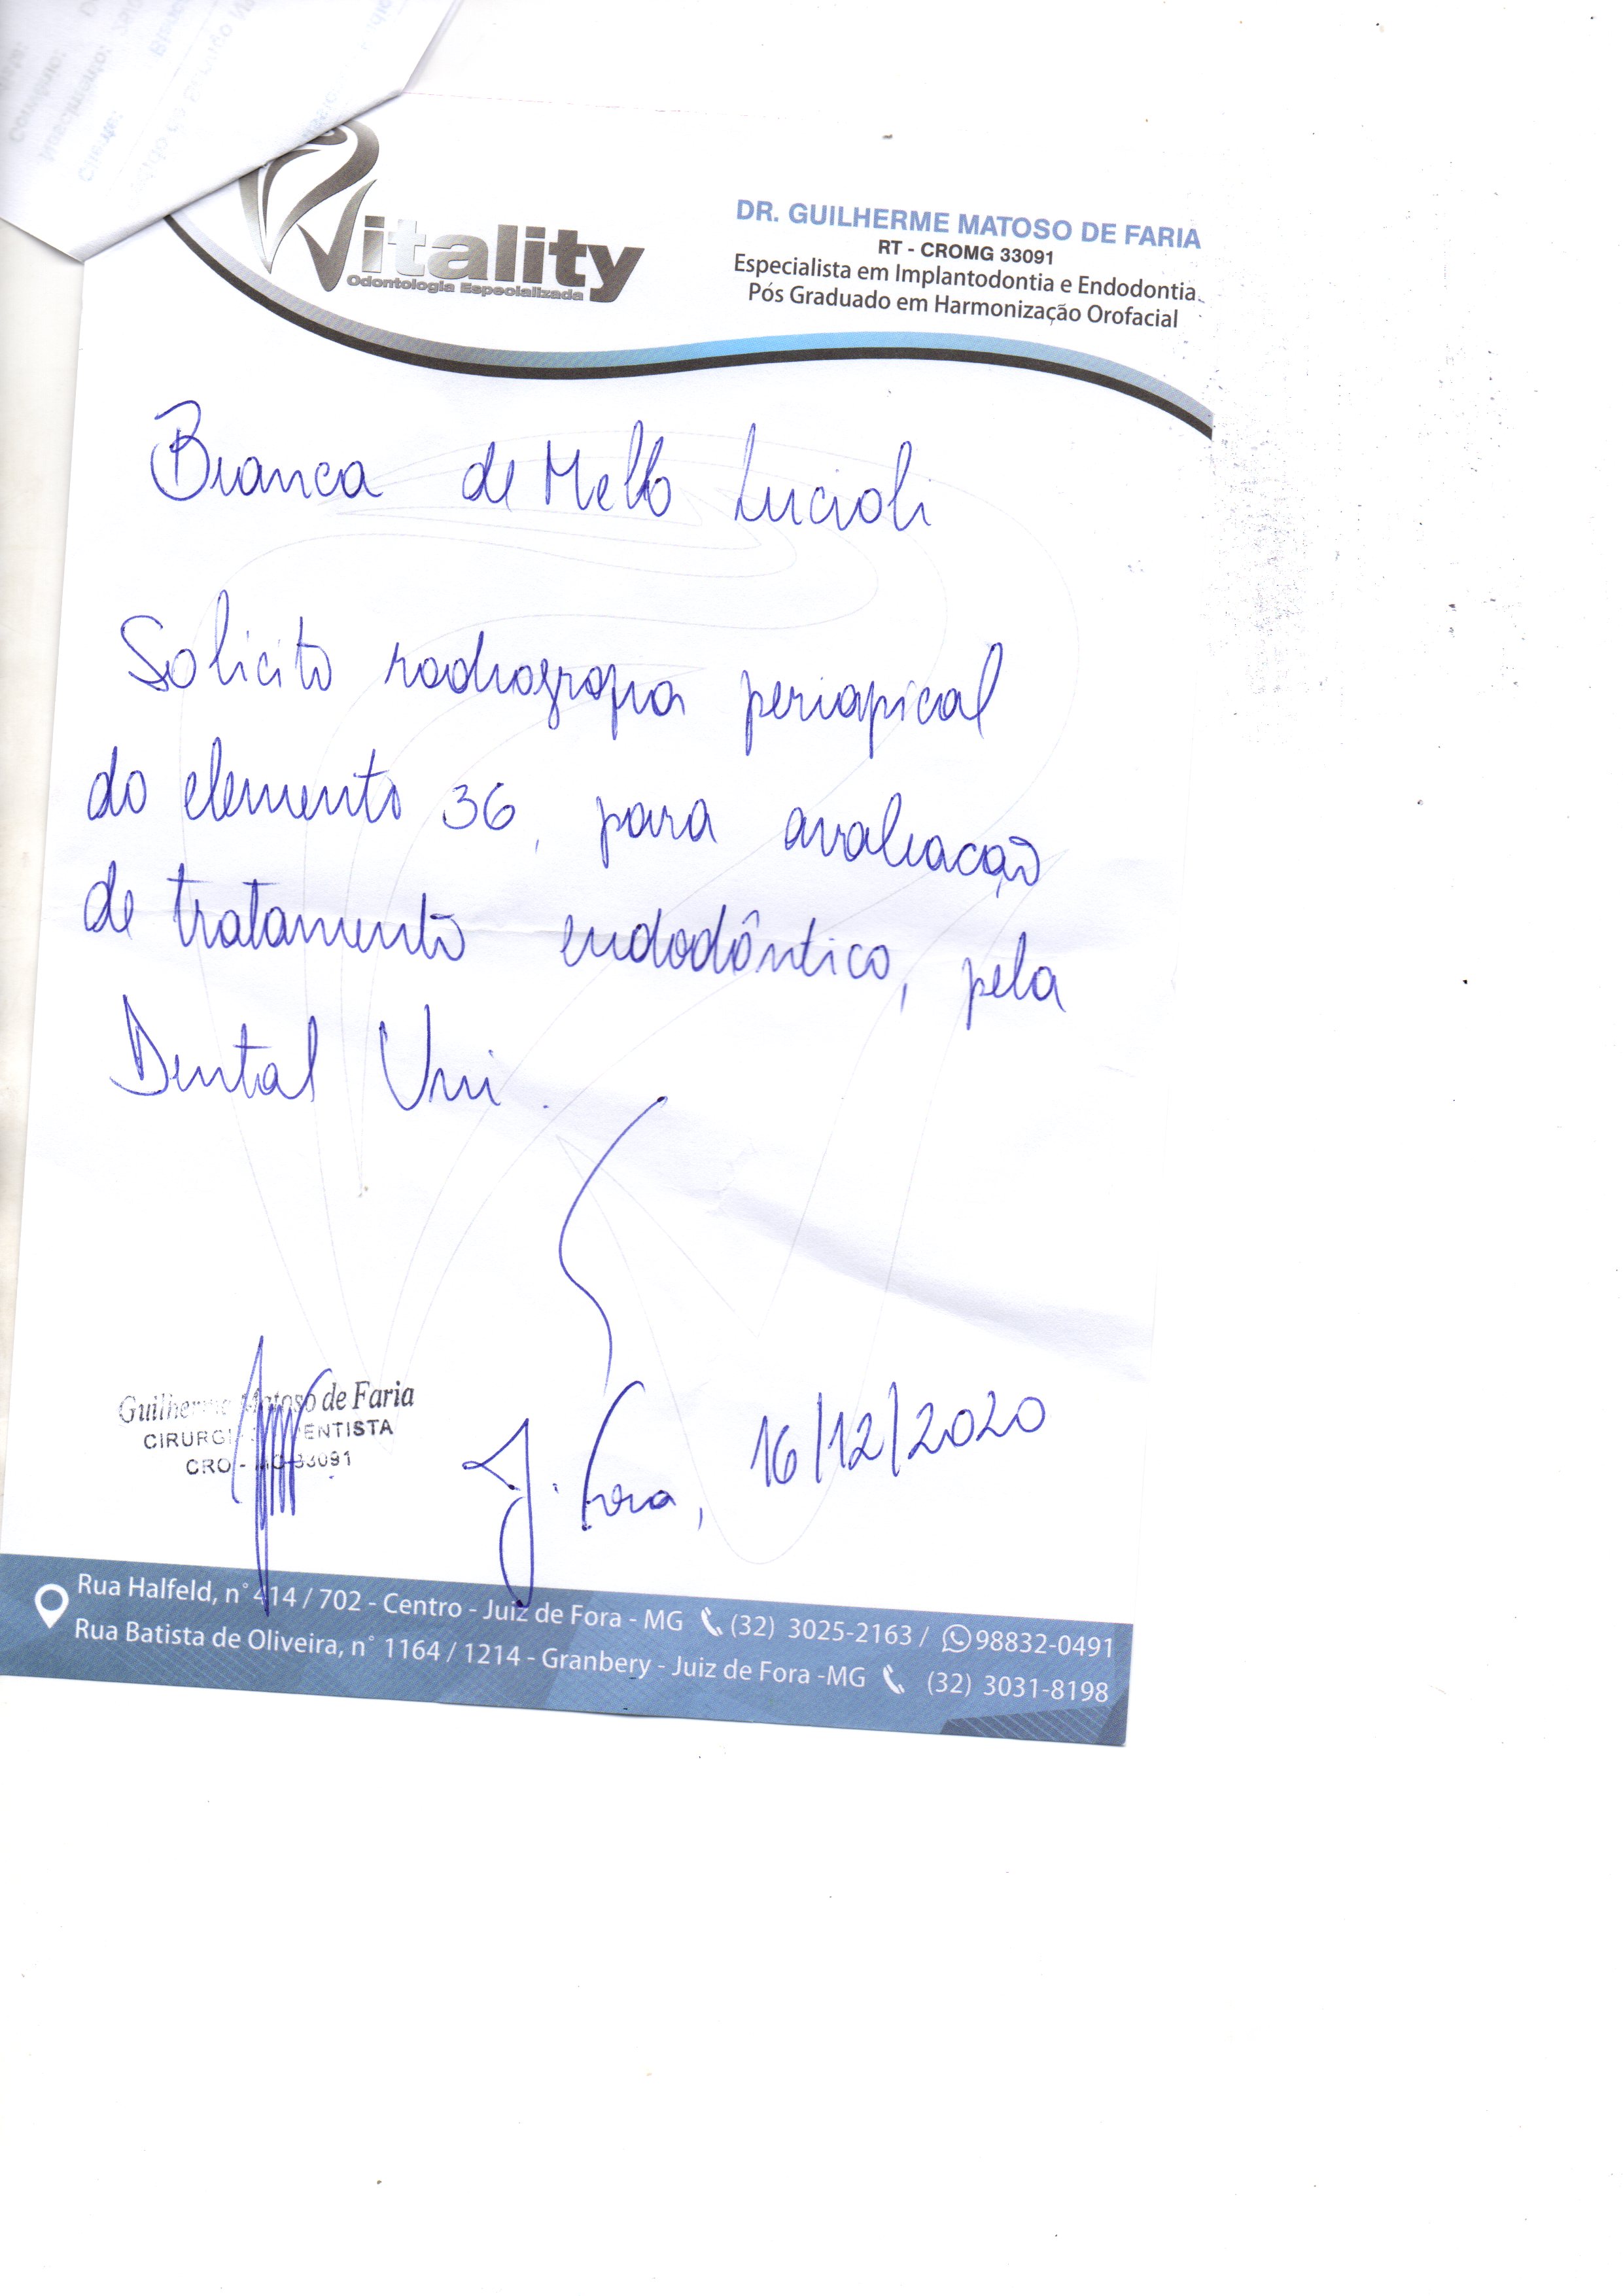 Vitality
Odontologia Especializada
DR. GUILHERME MATOSO DE FARIA
RT - CROMG 33091
Especialista em Implantodontia e Endodontia
Pós Graduado em Harmonização Orofacial
Bianca de Mello Lucioli
Solicito radiografia periapical
do elemento 36, para avaliação
de tratamento endodôntico, pela
Dental Uni.
Guilherme Matoso de Faria
CIRURGIÃO DENTISTA
CRO - MG 33091
J. Fora, 16/12/2020
Rua Halfeld, n° 414 / 702 - Centro - Juiz de Fora - MG (32) 3025-2163 / 98832-0491
Rua Batista de Oliveira, n° 1164 / 1214 - Granbery - Juiz de Fora -MG (32) 3031-8198